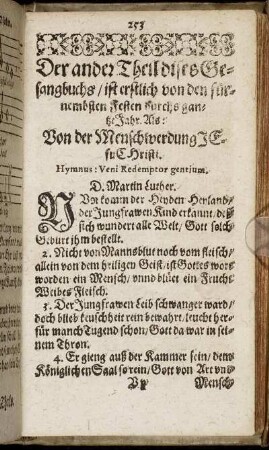 253
Der ander Theil dises Ge-
sangbuchs / ist erstlich von den für-
nembsten Festen durchs gan-
tze Jahr. Als:
Von der Menschwerdung JE-
su CHristi.
Hymnus: Veni Redemptor gentium.
D. Martin Luther.
NUn komm der Heyden Heyland /
der Jungfrawen Kind erkannt / deß
sich wundert alle Welt / Gott solch
Geburt ihm bestellt.
2. Nicht von Mannsblut noch vom fleisch /
allein von dem heiligen Geist / ist Gottes wort
worden ein Mensch / vnnd blüet ein Frucht
Weibes Fleisch.
3. Der Jungfrawen Leib schwanger ward /
doch blieb keuschheit rein bewahrt / leucht her-
für manch Tugend schon / Gott da war in sei-
nem Thron.
4. Er gieng auß der Kammer sein / dem
Königlichen Saal so rein / Gott von Art vnd
Mensch